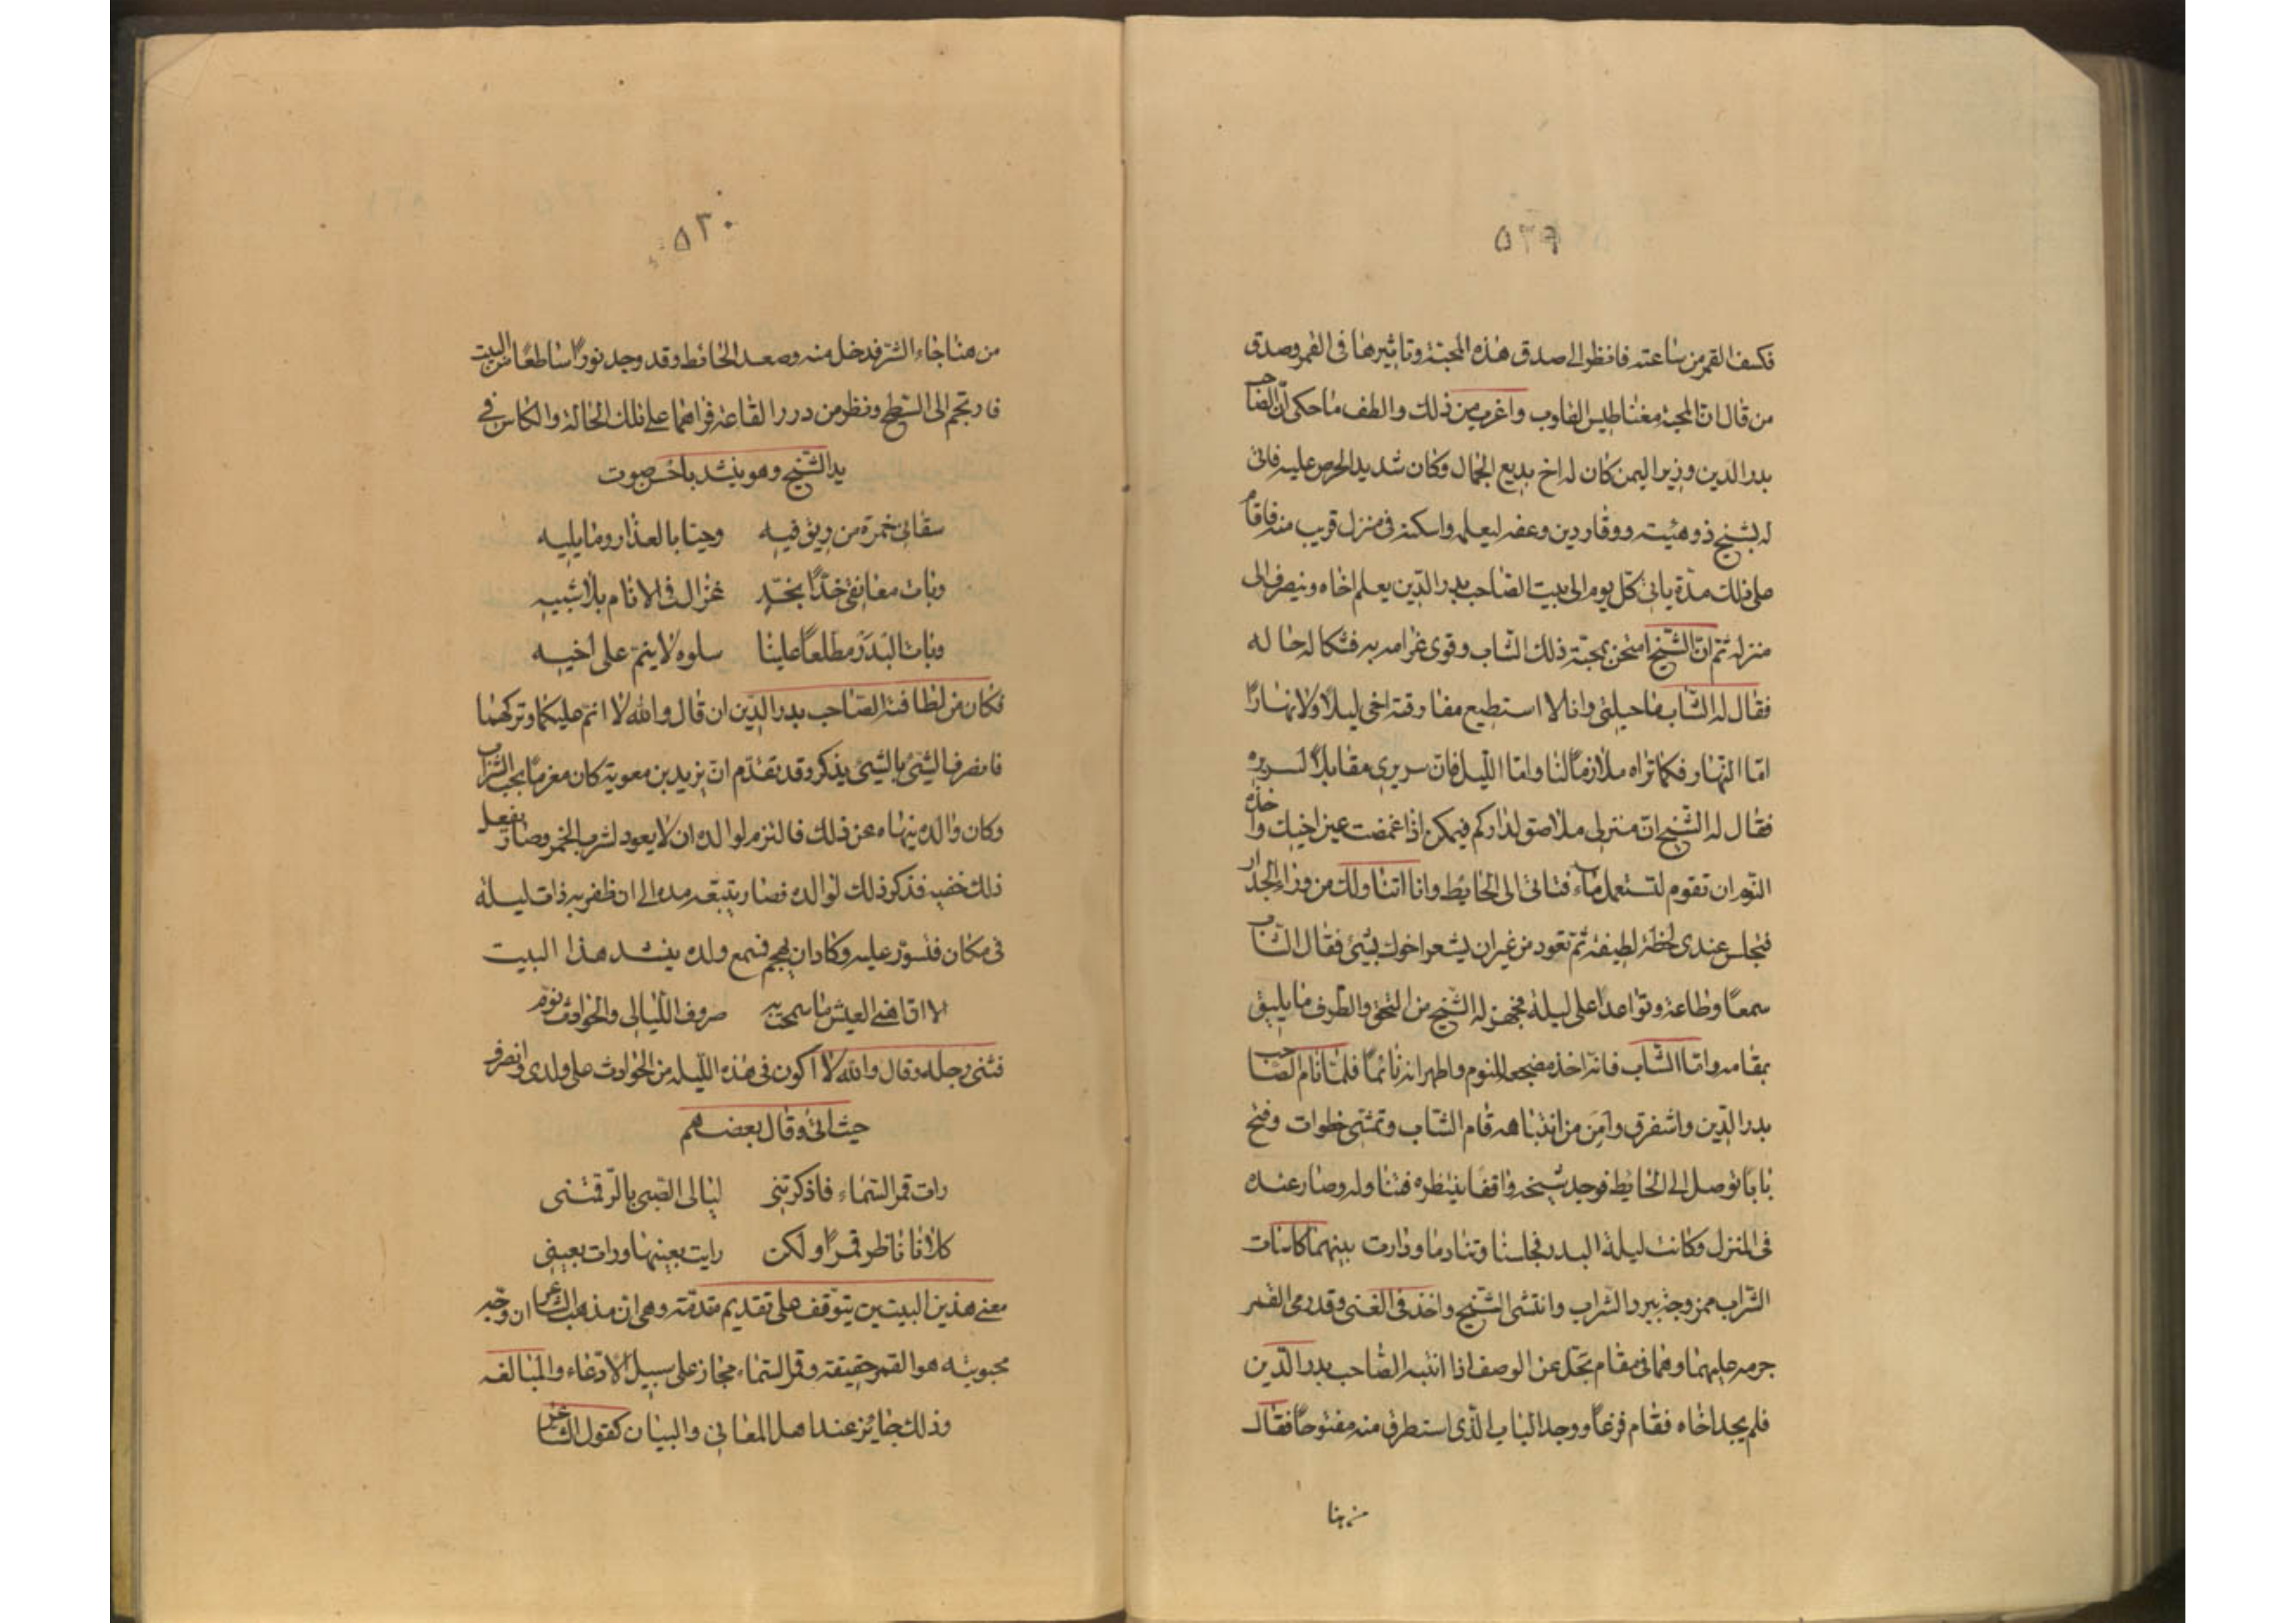 ٥٢٩
فكسف القمر من ساعته فانظر الى صدق هذه المحبة وتاثيرها فى القمر وصدق
من قال ان المحبة مغناطيس القلوب واغرب من ذلك والطف ما حكى ان الصاحب
بدر الدين وزير اليمن كان له اخ بديع الجمال وكان شديد الحرص عليه فاتى
له بشيخ ذو هيئة ووقار ودين وعفه ليعلمه واسكنه فى منزل قريب منه فاقام
على ذلك مدّة ياتى كل يوم الى بيت الصاحب بدر الدين يعلم اخاه وينصرف الى
منزله ثم ان الشيخ امتحن بمحبة ذلك الشاب وقوى غرامه به فشكا له حاله
فقال له الشاب ما حيلتى وانا لا استطيع مفارقة اخى ليلاً ولا نهاراً
امّا النهار فكما تراه ملازماً لنا وامّا الليل فان سريرى مقابلاً لسريره
فقال له الشيخ ان منزلى ملاصق لداركم فيمكن اذا غمضت عين اخيك واخذه
النوم ان تقوم لتستعمل ماء فتاتى الى الحايط وانا اتناولك من وراء الجدار
فتجلس عندى لحظة لطيفة ثم تعود من غير ان يشعر اخوك بشئ فقال الشاب
سمعاً وطاعة وتواعدا على ليلة فجهز له الشيخ من التحف والطرف ما يليق
بمقامه وامّا الشاب فانه اخذ مضجعه للنوم واظهر انه نائماً فلما نام الصاحب
بدر الدين واستغرق وامن من انتباهه قام الشاب وتمشى خطوات وفتح
باباً توصل الى الحايط فوجد شيخه واقفا ينتظره فتناوله وصار عنده
فى المنزل وكانت ليلة البدر فجلسا وتنادما ودارت بينهما كاسات
الشراب ممزوجة ببرد الشراب وانتشى الشيخ واخذ فى الغنى وقد رمى القمر
جرمه عليهما وهما فى مقام يجل عن الوصف اذا انتبه الصاحب بدر الدين
فلم يجد اخاه فقام فزعاً ووجد الباب الذى استطرق منه مفتوحاً فقال
من هنا
٥٣٠
من هنا جاء الشر فدخل منه وصعد الحائط وقد وجد نوراً ساطعاً من البيت
فارتجم الى السطح ونظر من درر القاعة فراهما على تلك الحالة والكاس فى
يد الشيخ وهو ينشد باحسن صوت
سقانى خمرة من ريق فيه وحيا بالعذار وما يليه
وبات معانقى خدّاً بخدّ غزال فى الانام بلا شبيه
وبات البدر مطلعاً علينا سلوه لا ينم على اخيه
فكان من لطافة الصاحب بدر الدين ان قال والله لا انم عليكما وتركهما
فانصرف الشئ بالشئ يذكر وقد تقدّم ان يزيد بن معوية كان مغرماً بحب الشراب
وكان والده ينهاه عن ذلك فالتزم لوالده ان لا يعود لشرب الخمر وصار يفعل
ذلك خفيه فذكر ذلك لوالده فصار يتبعه مده الى ان ظفر به ذات ليلة
فى مكان فتسوّر عليه وكاد ان يهجم فسمع ولده ينشد هذا البيت
الا ان اهنى العيش ما سمحت به صروف الليالى والحوادث نوّم
فثنى رجله وقال والله لا اكون فى هذه الليلة من الحوادث على ولدى وانصرف
حيث اتى وقال بعضهم
رات قمر السماء فاذكرتنى ليالى الصبى بالرقمتنى
كلانا ناظر قمراً ولكن رايت بعينها ورات بعينى
معنى هذين البيتين يتوقف على تقديم مقدمة وهى ان مذهب الشاعر ان وجه
محبوبته هو القمر حقيقة وقمر السماء مجاز على سبيل الادعاء والمبالغه
وذلك جايز عند اهل المعانى والبيان كقول الشاعر